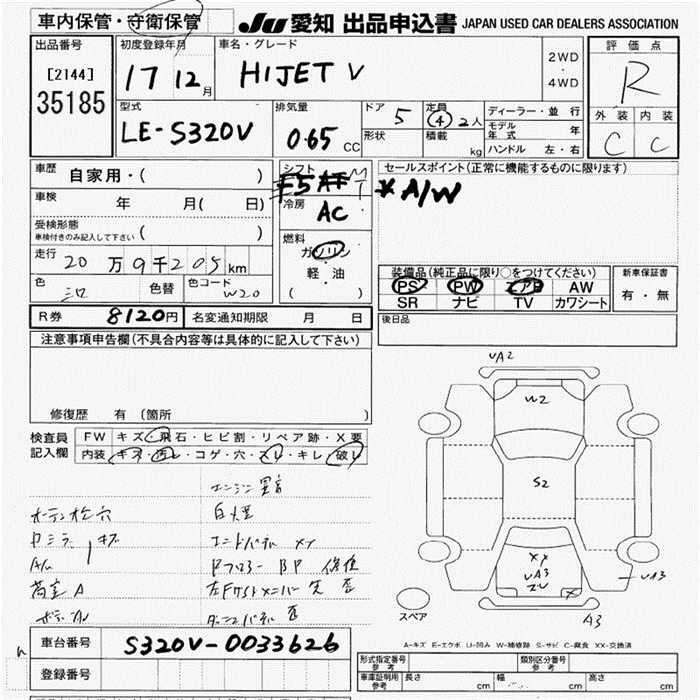 車内保管・守衛保管
JU 愛知 出品申込書 JAPAN USED CAR DEALERS ASSOCIATION
出品番号
[2144]
35185
初度登録年月
17 12月
車名・グレード
HIJET V
2WD
・
4WD
評価点
R
外装 内装
C C
型式
LE-S320V
排気量
0.65 CC
ドア 5
形状
定員 4 2人
積載 kg
ディーラー・並 行
モデル年式 年
ハンドル 左・右
車歴 自家用・( )
車検 年 月( 日)
受検形態
車検付きのみ記入して下さい ( )
走行 20万9千205km
色 シロ 色替 色コード W20
シフト
F5 AT MT
冷房
AC
燃料
ガソリン
軽・油
( )
セールスポイント(正常に機能するものに限ります)
*A/W
装備品(純正品に限り○をつけてください)
PS PW エアB AW
SR ナビ TV カワシート
新車保証書
有・無
後日品
R券 8120円 名変通知期限 月 日
注意事項申告欄(不具合内容等は具体的に記入して下さい)
修復歴 有(箇所 )
検査員記入欄
FW キズ・飛石・ヒビ割・リペア跡・X要
内装 キズ・汚レ・コゲ・穴・スレ・キレ・破レ
エンジン異音
白煙
エンドパネル XX
穴
キズ
荷室 A
UA2
W2
S2
XX
UA3
ZU
X
UA3
A3
スペア
A-キズ E-エクボ U-凹み W-補修跡 S-サビ C-腐食 XX-交換済
車台番号 S320V-0033626
登録番号
形式指定番号 参考
類別区分番号 参考
車庫証明用 参考 長さ cm 幅 cm 高さ cm